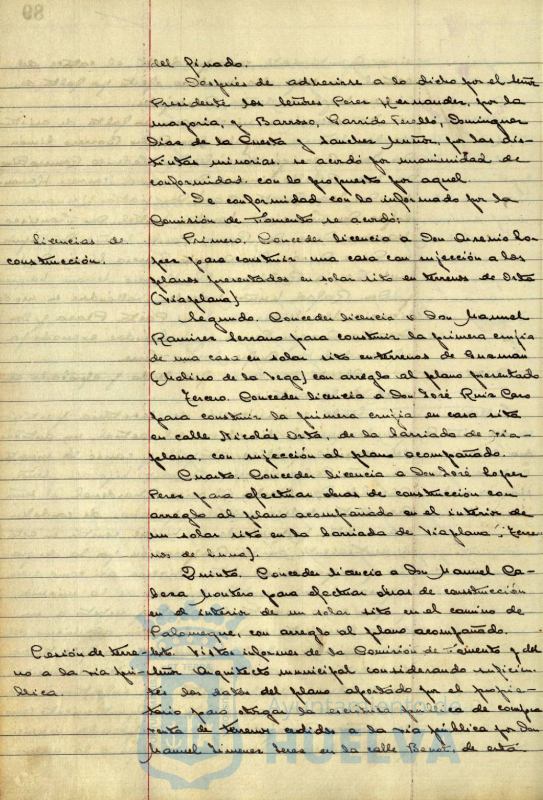 89
del Pinado.
Después de adherirse a lo dicho por el Señor
Presidente los Señores Perez Hernandez, por la
mayoria, y Barroso, Garrido Perelló, Dominguez
Dias de la Cuesta y Sanchez Muñoz, por las dis-
tintas minorias, se acordó por unanimidad de
conformidad con lo propuesto por aquel.
De conformidad con lo informado por la
Comisión de Fomento se acordó:
Licencias de
construcción.
Primero. Conceder licencia a Don Eusebio Lo-
pez para construir una casa con sujección a los
planos presentados en solar sito en terrenos de Orta
(Viaplana)
Segundo. Conceder licencia a Don Manuel
Ramirez Serrano para construir la primera crujia
de una casa en solar sito en terrenos de Guzman
(Molino de la Vega) con arreglo al plano presentado
Tercero. Conceder licencia a Don José Ruiz Caro
para construir la primera crujia en casa sita
en calle Nicolás Orta, de la barriada de Via-
plana, con sujección al plano acompañado.
Cuarto. Conceder licencia a Don José Lopez
Perez para efectuar obras de construcción con
arreglo al plano acompañado en el interior de
un solar sito en la barriada de Viaplana (Terre-
nos de
Quinto. Conceder licencia a Don Manuel Ca-
beza Montero para efectuar obras de construcción
en el interior de un solar sito en el camino de
Palomeque, con arreglo al plano acompañado.
Cesión de terre-
no a la via pú-
blica
Visto informes de la Comisión de Fomento y del
Señor Arquitecto municipal considerando suficien-
tes los datos del plano aportado por el propie-
tario para otorgar la escritura pública de compra
venta de terrenos cedidos a la via pública por Don
Manuel Jimenez Jerez en la calle Benot, de esta
Ayuntamiento de
HUELVA